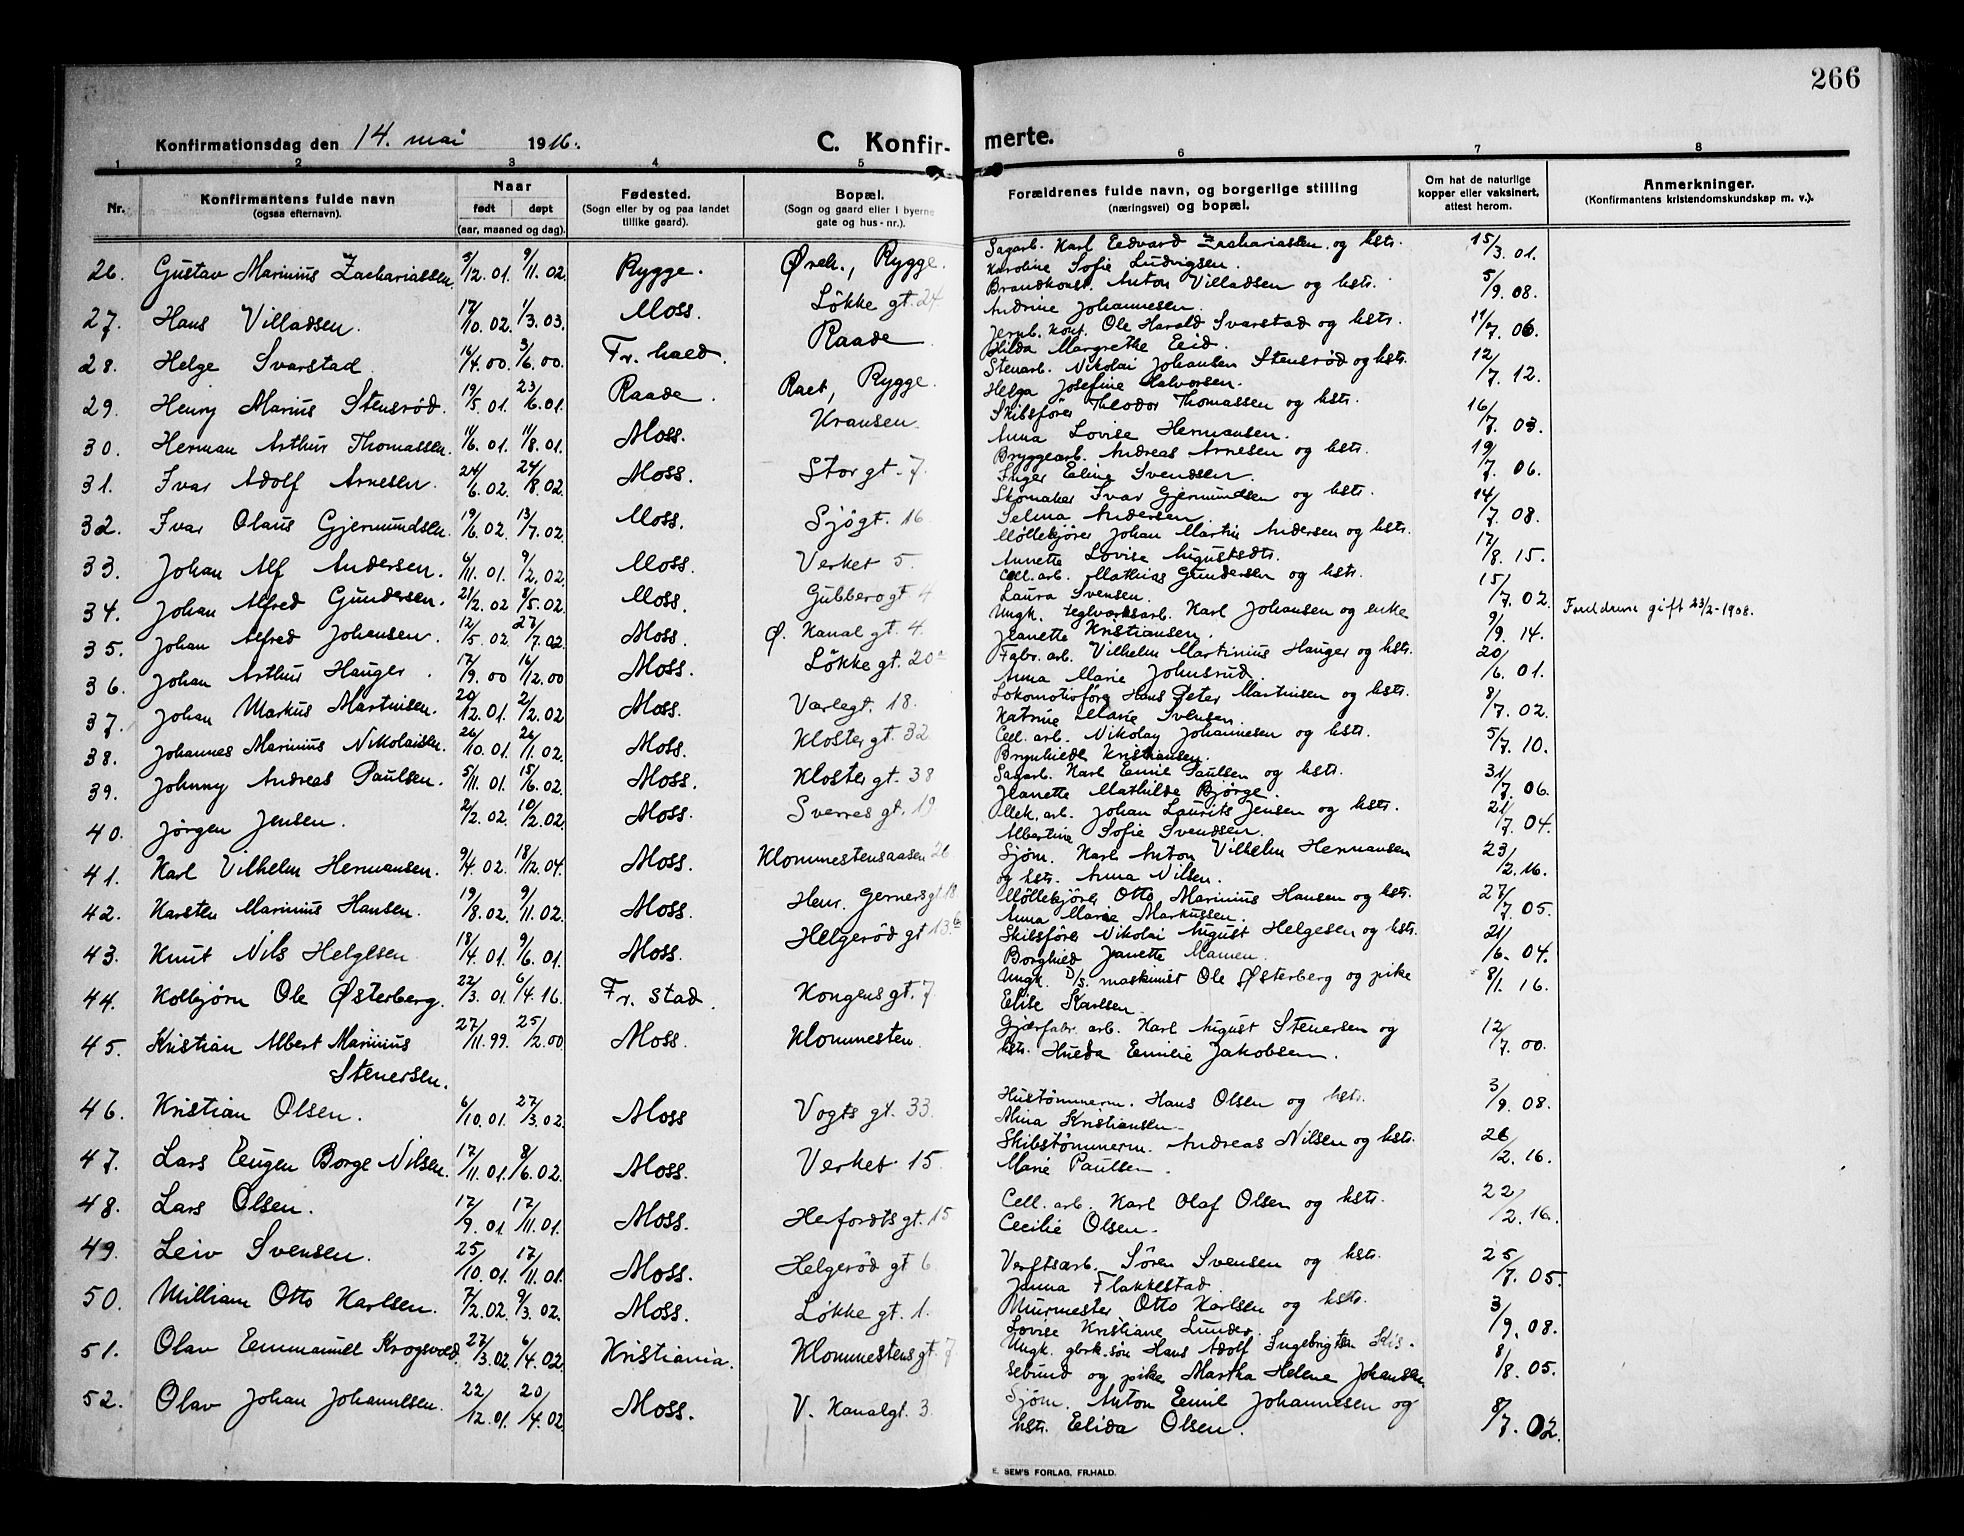 266
Konfirmationsdag den 14. mai 1916.
C. Konfirmerte.
1 2 3 4 5 6 7 8
Nr.
Konfirmantens fulde navn
(ogsaa efternavn).
Naar
født døpt
(aar, maaned og dag).
Fødested.
(Sogn eller by og paa landet
tillike gaard).
Bopæl.
(Sogn og gaard eller i byerne
gate og hus-nr.).
Forældrenes fulde navn, og borgerlige stilling
(næringsvei) og bopæl.
Om hat de naturlige
kopper eller vaksinert,
attest herom.
Anmerkninger.
(Konfirmantens kristendomskundskap m. v.).
26. Gustav Marinius Zachariassen. 5/12.01. 9/11.02. Rygge. Øreh., Rygge. Sagarb. Karl Edvard Zachariassen og hstr. 15/3.01.
Karoline Sofie Ludvigsen.
27. Hans Villadsen. 17/10.02. 1/3.03. Moss. Løkke gt. 24 Brandkonst. Anton Villadsen og hstr. 5/9.08.
Andrine Johannesen.
28. Helge Svarstad. 14/4.00. 3/6.00. Fr. hald. Raade Jernb. konf. Ole Harald Svarstad og hstr. 11/7.06.
Hilda Margrethe Eid.
29. Henry Marius Stensrød. 19/5.01. 23/6.01. Raade. Raet, Rygge. Stenarb. Nikolai Johansen Stensrød og hstr. 12/7.12.
Helga Josefine Halvorsen.
30. Herman Arthur Thomassen. 11/6.01. 11/8.01. Moss. Kransen. Skibsfører Theodor Thomassen og hstr. 16/7.03.
Anna Lovise Hermansen.
31. Ivar Adolf Arnesen. 24/6.02. 24/8.02. Moss. Stor gt. 7. Bryggearb. Andreas Arnesen og hstr. 19/7.06.
Inger Eline Svendsen.
32. Ivar Olaus Gjermundsen. 19/6.02. 13/7.02. Moss. Sjøgt. 16. Skomaker Ivar Gjermundsen og hstr. 14/7.08.
Selma Andersen
33. Johan Alf Andersen. 6/11.01. 9/2.02. Moss. Verket 5. Møllekjører Johan Martin Andersen og hstr. 17/8.15.
Annette Lovise Augustsdtr.
34. Johan Alfred Gundersen. 21/2.02 8/5.02. Moss. Gubbero gt 4 Cell. arb. Mathias Gundersen og hstr. 15/7.02.
Laura Svensen.
Foreldrene gift 23/2-1908.
35. Johan Alfred Johansen. 12/5.02. 27/7.02. Moss. Ø. Kanal gt. 4. Ungk. teglverksarb. Karl Johansen og enke 9/9.14.
Jeanette Kristiansen.
36. Johan Arthur Hauger. 17/9.00 16/12.00 Moss. Løkke gt. 20 Fabr. arb. Vilhelm Martinius Hauger og hstr. 20/6.01.
Anna Marie Johnsrud.
37. Johan Markus Martinisen. 20/12.01. 2/2.02 Moss. Varlegt. 18. Lokomotivfører Hans Peter Martinisen og hstr. 8/7.02.
Katrine Marie Svensen.
38. Johannes Marinius Nikolaisen. 26/10.01. 24/11.02. Moss. Kloster gt. 32 Cell. arb. Nikolay Johannesen og hstr. 5/7.10.
Brynhilde Kristiansen.
39. Johnny Andreas Paulsen. 5/11.01. 15/6.02. Moss. Kloster gt. 38 Sagarb. Karl Emil Paulsen og hstr. 31/7.06.
Jeanette Mathilde Bjørge.
40. Jørgen Jensen. 2/2.02. 10/2.02. Moss. Sverres gt. 19 Mek. arb. Johan Laurits Jensen og hstr. 21/7.04.
Albertine Sofie Svendsen.
41. Karl Vilhelm Hermansen. 9/4.02. 18/12.04. Moss. Klommestensaasen 26 Sjøm. Karl Anton Vilhelm Hermansen 23/2.16.
og hstr. Anna Nilsen.
42. Karsten Marinius Hansen. 19/8.02. 9/11.02. Moss. Henr. Gerners gt. 18 Møllekjører Otto Marinius Hansen og hstr. 27/7.05.
Anna Marie Markussen.
43. Knut Nils Helgesen 18/4.01. 9/6.01. Moss. Helgerød gt 13. Skibsfører Nikolai August Helgesen og hstr. 21/6.04.
Borghild Jeanette Mamen.
44. Kolbjørn Ole Østerberg. 22/3.01. 6/4.16. Fr. stad. Kongens gt. 7 Ungk. D/S. maskinist Ole Østerberg og pike 8/1.16.
Elise Karlsen.
45. Kristian Albert Marinius 27/11.99. 25/2.00. Moss. Klommesten. Gjærfabr. arb. Karl August Stenersen og 12/7.00.
Stenersen. hstr. Hulda Emilie Jakobsen.
46. Kristian Olsen. 6/10.01. 27/3.02. Moss Vogts gt. 33. Hustømmerm. Hans Olsen og hstr. 3/9.08.
Alina Kristiansen
47. Lars Eugen Borge Nilsen. 17/11.01. 8/6.02. Moss. Verket 15. Skibstømmerm. Andreas Nilsen og hstr. 26/2.16.
Marie Paulsen.
48. Lars Olsen. 17/9.01. 17/11.01. Moss. Herfordts gt. 15 Cell. arb. Karl Olaf Olsen og hstr. 22/2.16.
Cecilie Olsen.
49. Leiv Svensen. 25/10.01. 17/11.01. Moss. Helgerød gt 6. Verftsarb. Søren Svensen og hstr. 25/7.05.
Janna Flakkestad.
50. William Otto Karlsen. 7/2.02. 9/3.02. Moss. Løkke gt. 1. Murmester Otto Karlsen og hstr. 3/9.08.
Lovise Kristiane Lunder.
51. Olav Emmanuel Krogsvold. 27/3.02. 6/4.02. Kristiania. Klommestens gt. 7 Ungk. gbrk. søn Hans Adolf Ingebrigtsen 8/8.05.
sebund og pike Martha Helene Johansen
52. Olav Johan Johannesen. 22/12.01. 20/4.02. Moss. V. Kanalgt. 3. Sjøm. Anton Emil Johannesen og 8/7.02.
hstr. Elida Olsen.
E. SEM'S FORLAG, FR.HALD.